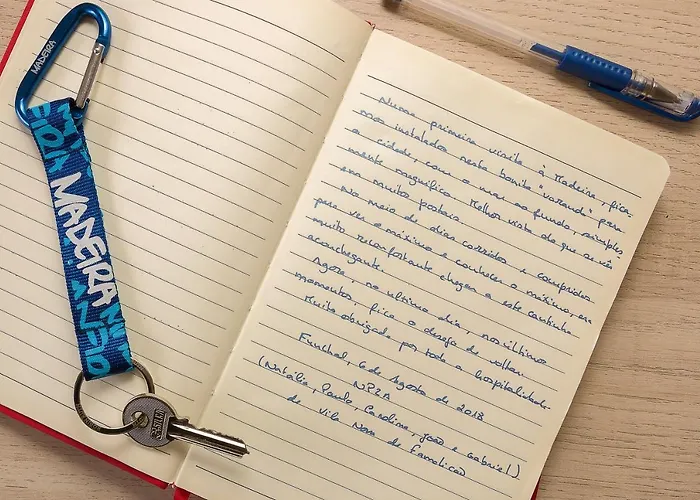 MADEIRA
MADEIRA
Numa primeira visita à Madeira, fica-
mos instalados nesta bonita "varanda" para
a cidade, com o mar ao fundo, simples
mente magnífico. Melhor vista do que se vê
em muitos postais.
No meio de dias corridos e compridos
para ver o máximo e conhecer o máximo, era
muito reconfortante chegar a este cantinho
aconchegante.
Agora, no último dia, nos últimos
momentos, fica o desejo de voltar.
Muito obrigada por toda a hospitalidade.
Funchal, 6 de Agosto de 2018
(Natália, Paulo, Carolina, João e Gabriel).
de Vila Nova de Famalicão